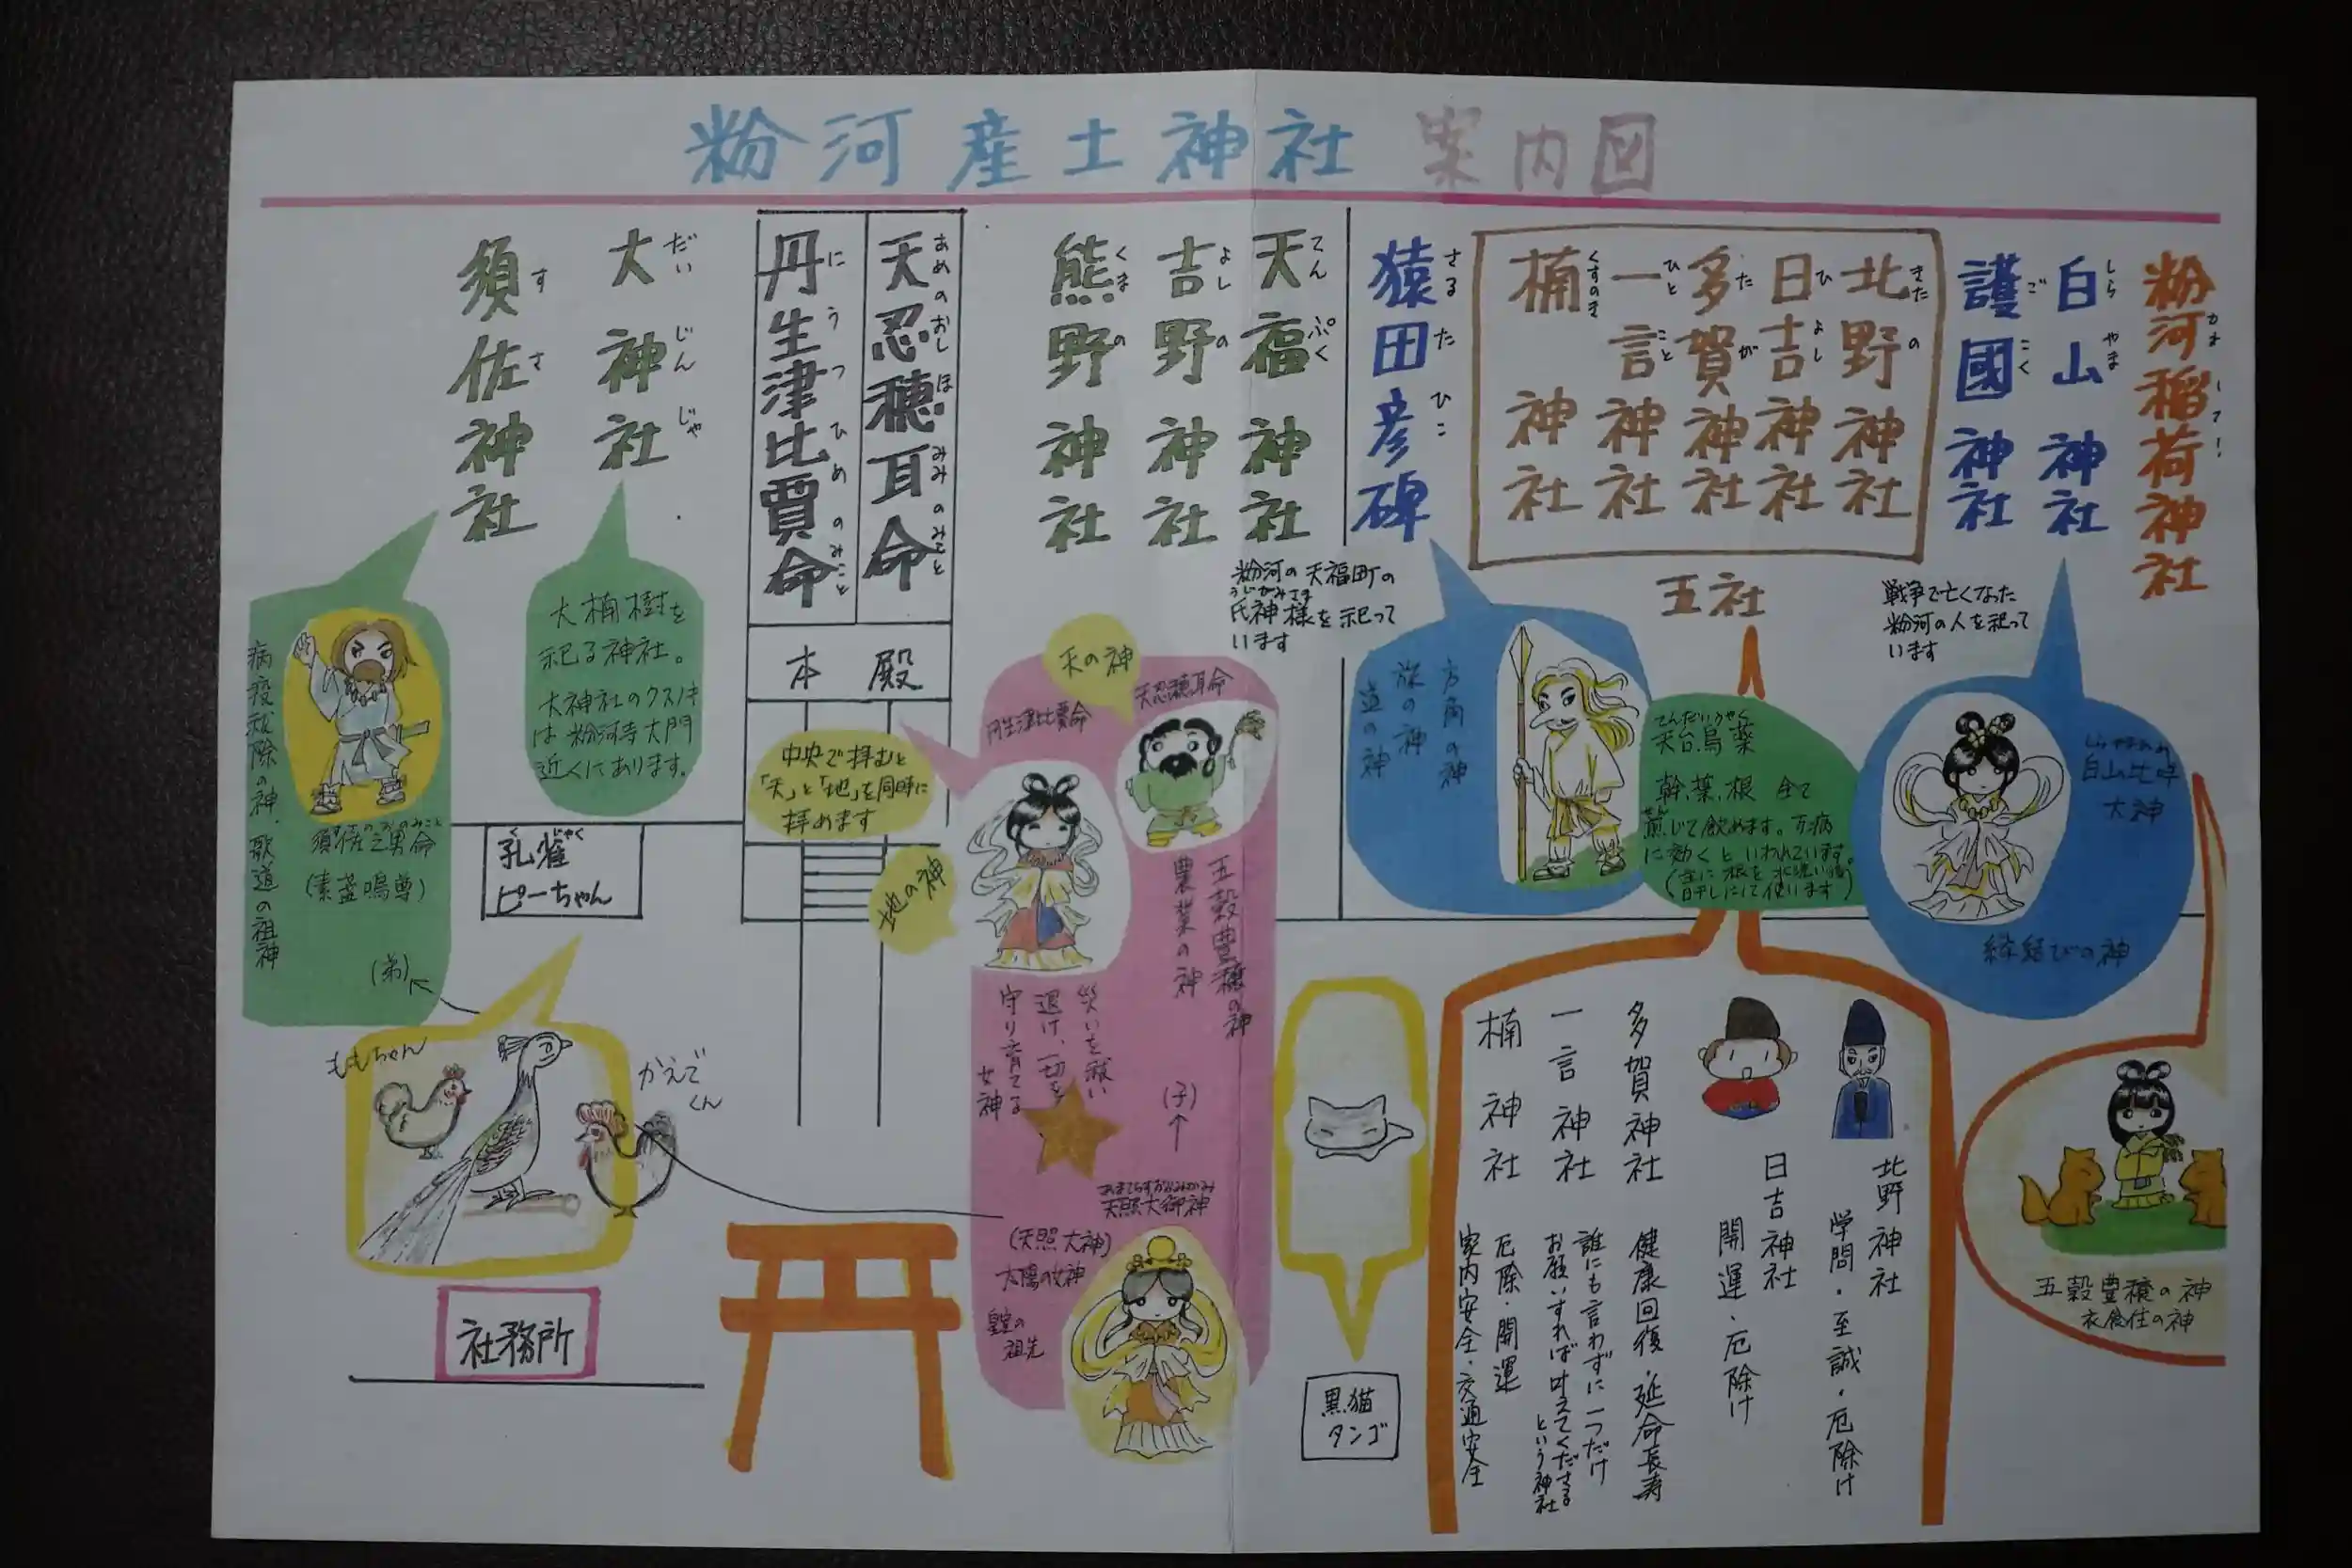 粉河産土神社 案内図
粉河稲荷神社
白山神社
しらやま
護國神社
ごこく
北野神社
きたの
日吉神社
ひよし
多賀神社
たが
一言神社
ひとこと
楠神社
くすのき
五社
猿田彦碑
さるたひこ
天福神社
てんぷく
吉野神社
よしの
熊野神社
くまの
天忍穂耳命
あめのおしほみみのみこと
丹生津比賣命
にうつひめのみこと
本殿
大神社
だいじんじゃ
須佐神社
すさ
戦争で亡くなった
粉河の人を祀って
います
粉河の天福町の
うじがみさま
氏神様を祀って
います
白山比咩
大神
縁結びの神
てんだいうやく
天台烏薬
幹、葉、根 全て
煎じて飲めます。万病
に効くといわれています。
方角の神
旅の神
道の神
天の神
天忍穂耳命
丹生津比賣命
中央で拝むと
「天」と「地」を同時に
拝めます
地の神
五穀豊穣の神
農業の神
災いを祓い
退け、一切を
守り育てる
女神
(子)
あまてらすおおみかみ
天照大御神
(天照大神)
太陽の女神
皇室の
祖先
大楠樹を
祀る神社。
大神社のクスノキ
は粉河寺大門
近くにあります。
病疫祓除の神、歌道の祖神
須佐之男命
(素盞嗚尊)
(弟)
くじゃく
孔雀
ピーちゃん
ももちゃん
かえで
くん
社務所
黒猫
タンゴ
北野神社
学問・至誠・厄除け
日吉神社
開運・厄除け
多賀神社
健康回復・延命長寿
一言神社
誰にも言わずに一つだけ
お願いすれば叶えてくださる
という神社
楠神社
厄除・開運
家内安全・交通安全
五穀豊穣の神
衣食住の神